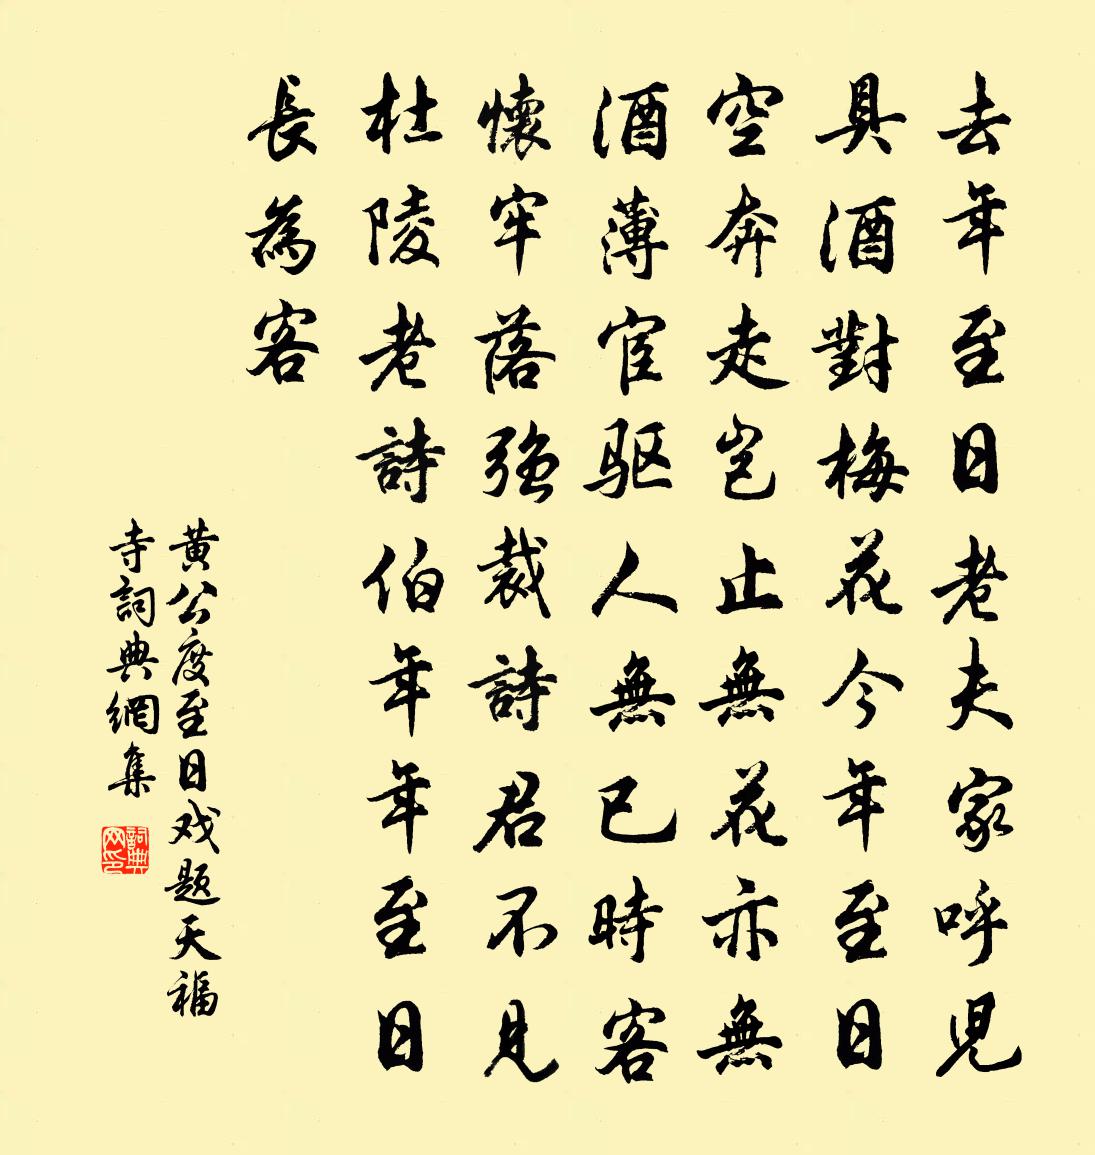 去年至日老夫家呼児
具酒對梅花今年至日
空奔走岂止無花亦無
酒薄宦驱人無已時客
懷牢落强裁詩君不見
杜陵老詩伯年年至日
長為客
黄公度至日戏题天福
寺詞典網集
詞典
网印